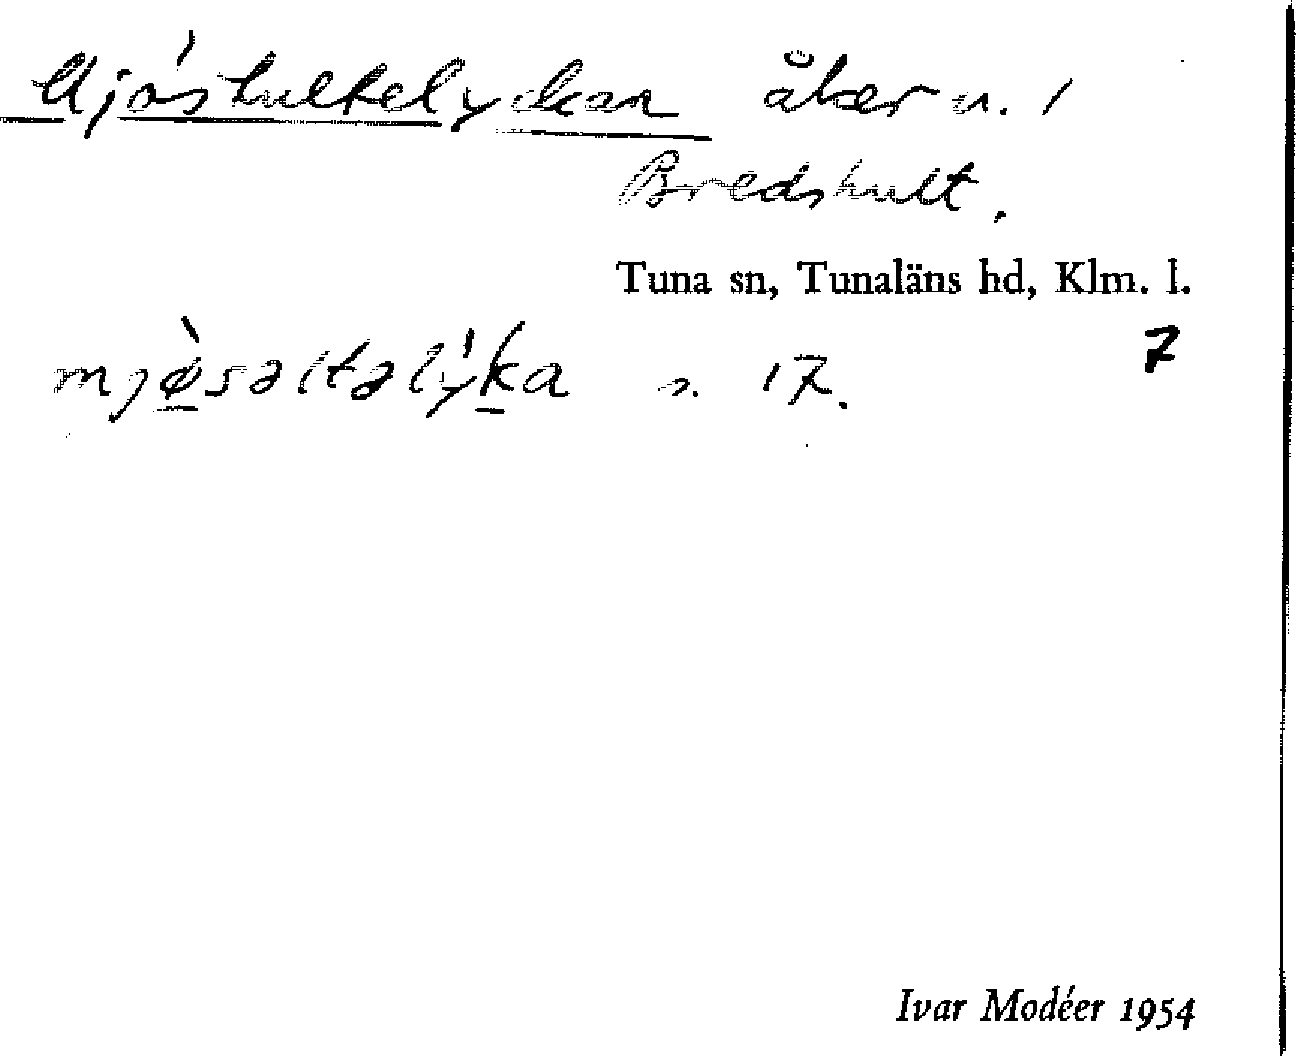 Mjöshultelyckan åker n. 1
Bredshult.
Tuna sn, Tunaläns hd, Klm. l.
7
mjø̀səltəlýka s. 17.
Ivar Modéer 1954